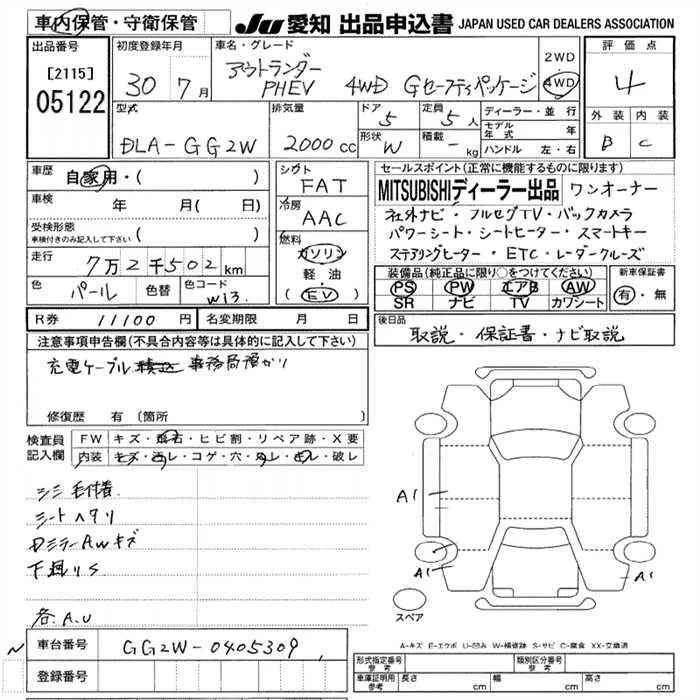 車内保管・守衛保管
JU 愛知 出品申込書 JAPAN USED CAR DEALERS ASSOCIATION
出品番号
[2115]
05122
初度登録年月
30 7月
車名・グレード
アウトランダー
PHEV 4WD Gセーフティパッケージ
2WD
4WD
評価点
4
外装 内装
B C
型式
DLA-GG2W
排気量
2000cc
ドア
5
形状
W
定員
5人
積載
- kg
ディーラー・並行
モデル年式 年
ハンドル 左・右
車歴
自家用・( )
車検 年 月( 日)
受検形態
車検付きのみ記入して下さい ( )
走行
7万2千502km
色
パール
色替
色コード
W13
シカト
FAT
冷房
AAC
燃料
ガソリン
軽油
(EV)
セールスポイント(正常に機能するものに限ります)
MITSUBISHIディーラー出品 ワンオーナー
社外ナビ・フルセグTV・バックカメラ
パワーシート・シートヒーター・スマートキー
ステアリングヒーター・ETC・レーダークルーズ
装備品(純正品に限り○をつけてください)
PS PW エアB AW
SR ナビ TV カワシート
新車保証書
有・無
R券 11100円
名変期限 月 日
後日品
取説・保証書・ナビ取説
注意事項申告欄(不具合内容等は具体的に記入して下さい)
充電ケーブル 事務局預かり
修復歴 有 〔箇所 〕
検査員
記入欄
FW キズ・飛石・ヒビ割・リペア跡・X要
内装 キズ・汚レ・コゲ・穴・スレ・キレ・破レ
シミ 毛付着
シートヘタリ
DミラーAWキズ
下廻りS
各A.U
A1
A1
A1
スペア
A-キズ E-エクボ U-凹み W-補修跡 S-サビ C-腐食 XX-交換済
車台番号
GG2W-0405309
登録番号
形式指定番号
参考
類別区分番号
参考
車庫証明用
参考
長さ cm
幅 cm
高さ cm